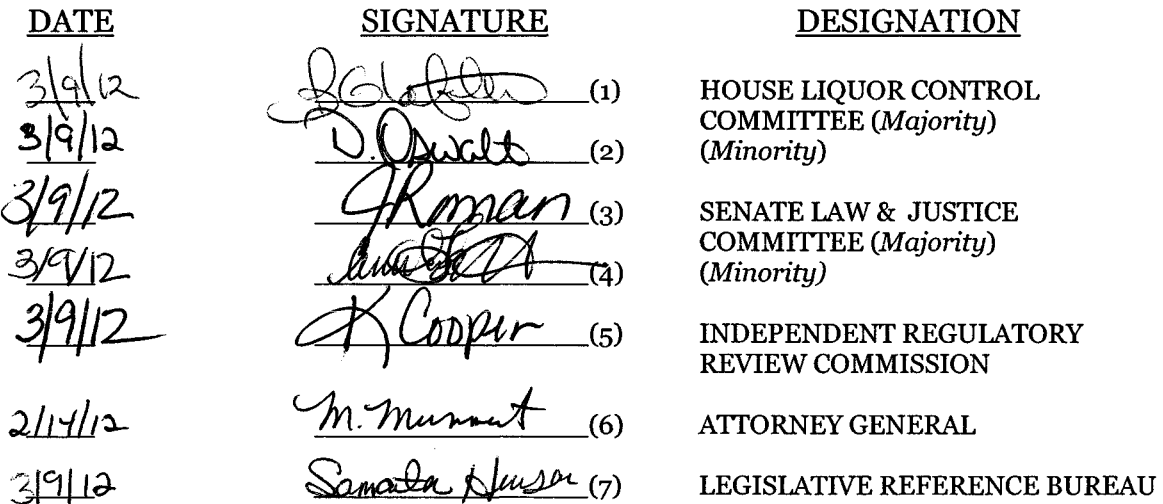 DATE SIGNATURE DESIGNATION
3/9/12 (1) HOUSE LIQUOR CONTROL
COMMITTEE (Majority)
3/9/12 D. Oswalt (2) (Minority)
3/9/12 JRoman (3) SENATE LAW & JUSTICE
COMMITTEE (Majority)
3/9/12 (4) (Minority)
3/9/12 K Cooper (5) INDEPENDENT REGULATORY
REVIEW COMMISSION
2/14/12 M. (6) ATTORNEY GENERAL
3/9/12 (7) LEGISLATIVE REFERENCE BUREAU